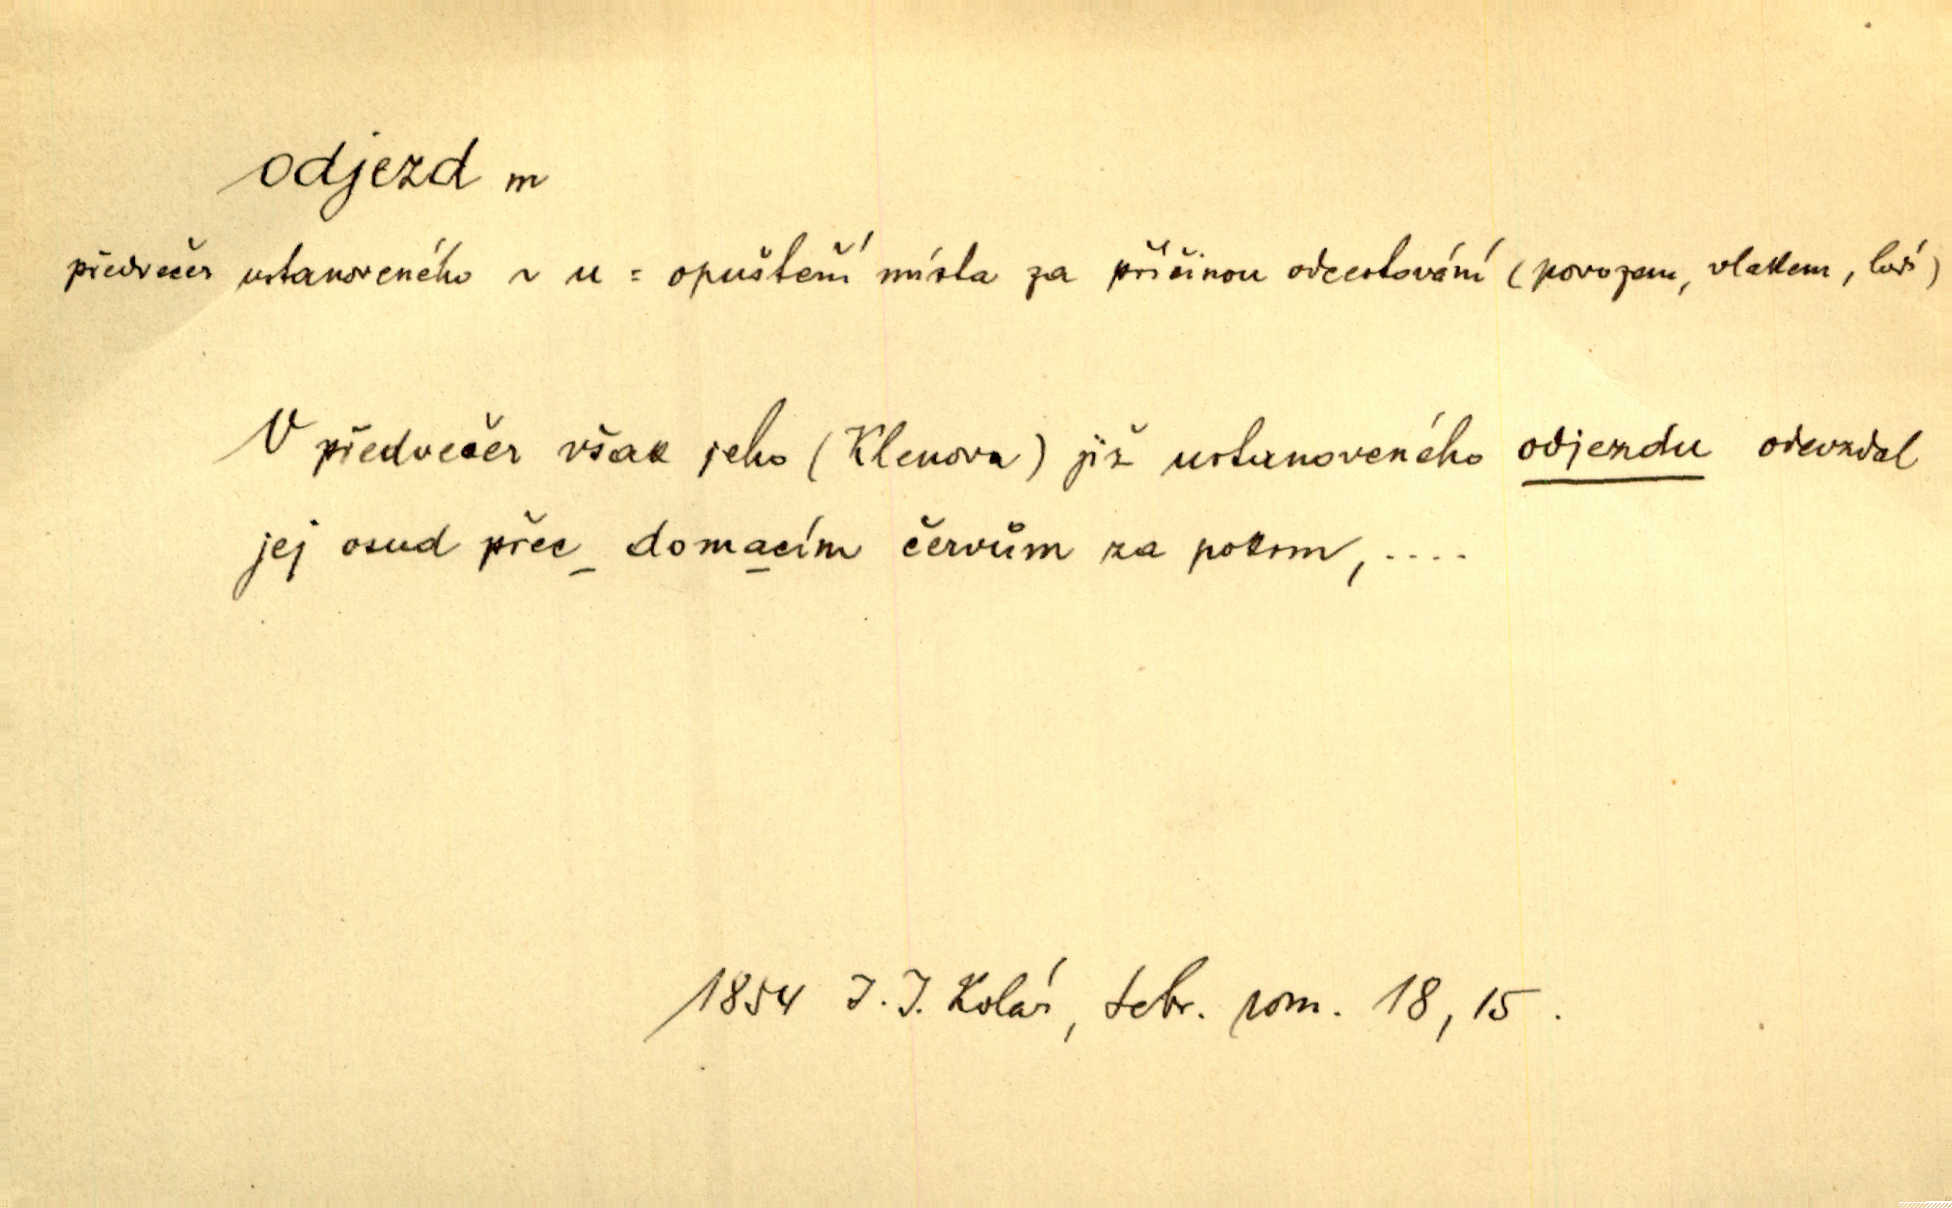 odjezd m
předvečer ustanoveného ~ u = opuštění místa za příčinou odcestování (povozem, vlakem, lodí)
V předvečer však jeho (Klenova) již ustanoveného odjezdu odevzdal
jej osud přec domacím červům za pokrm, ....
1854 J. J. Kolár, sebr. rom. 18, 15.